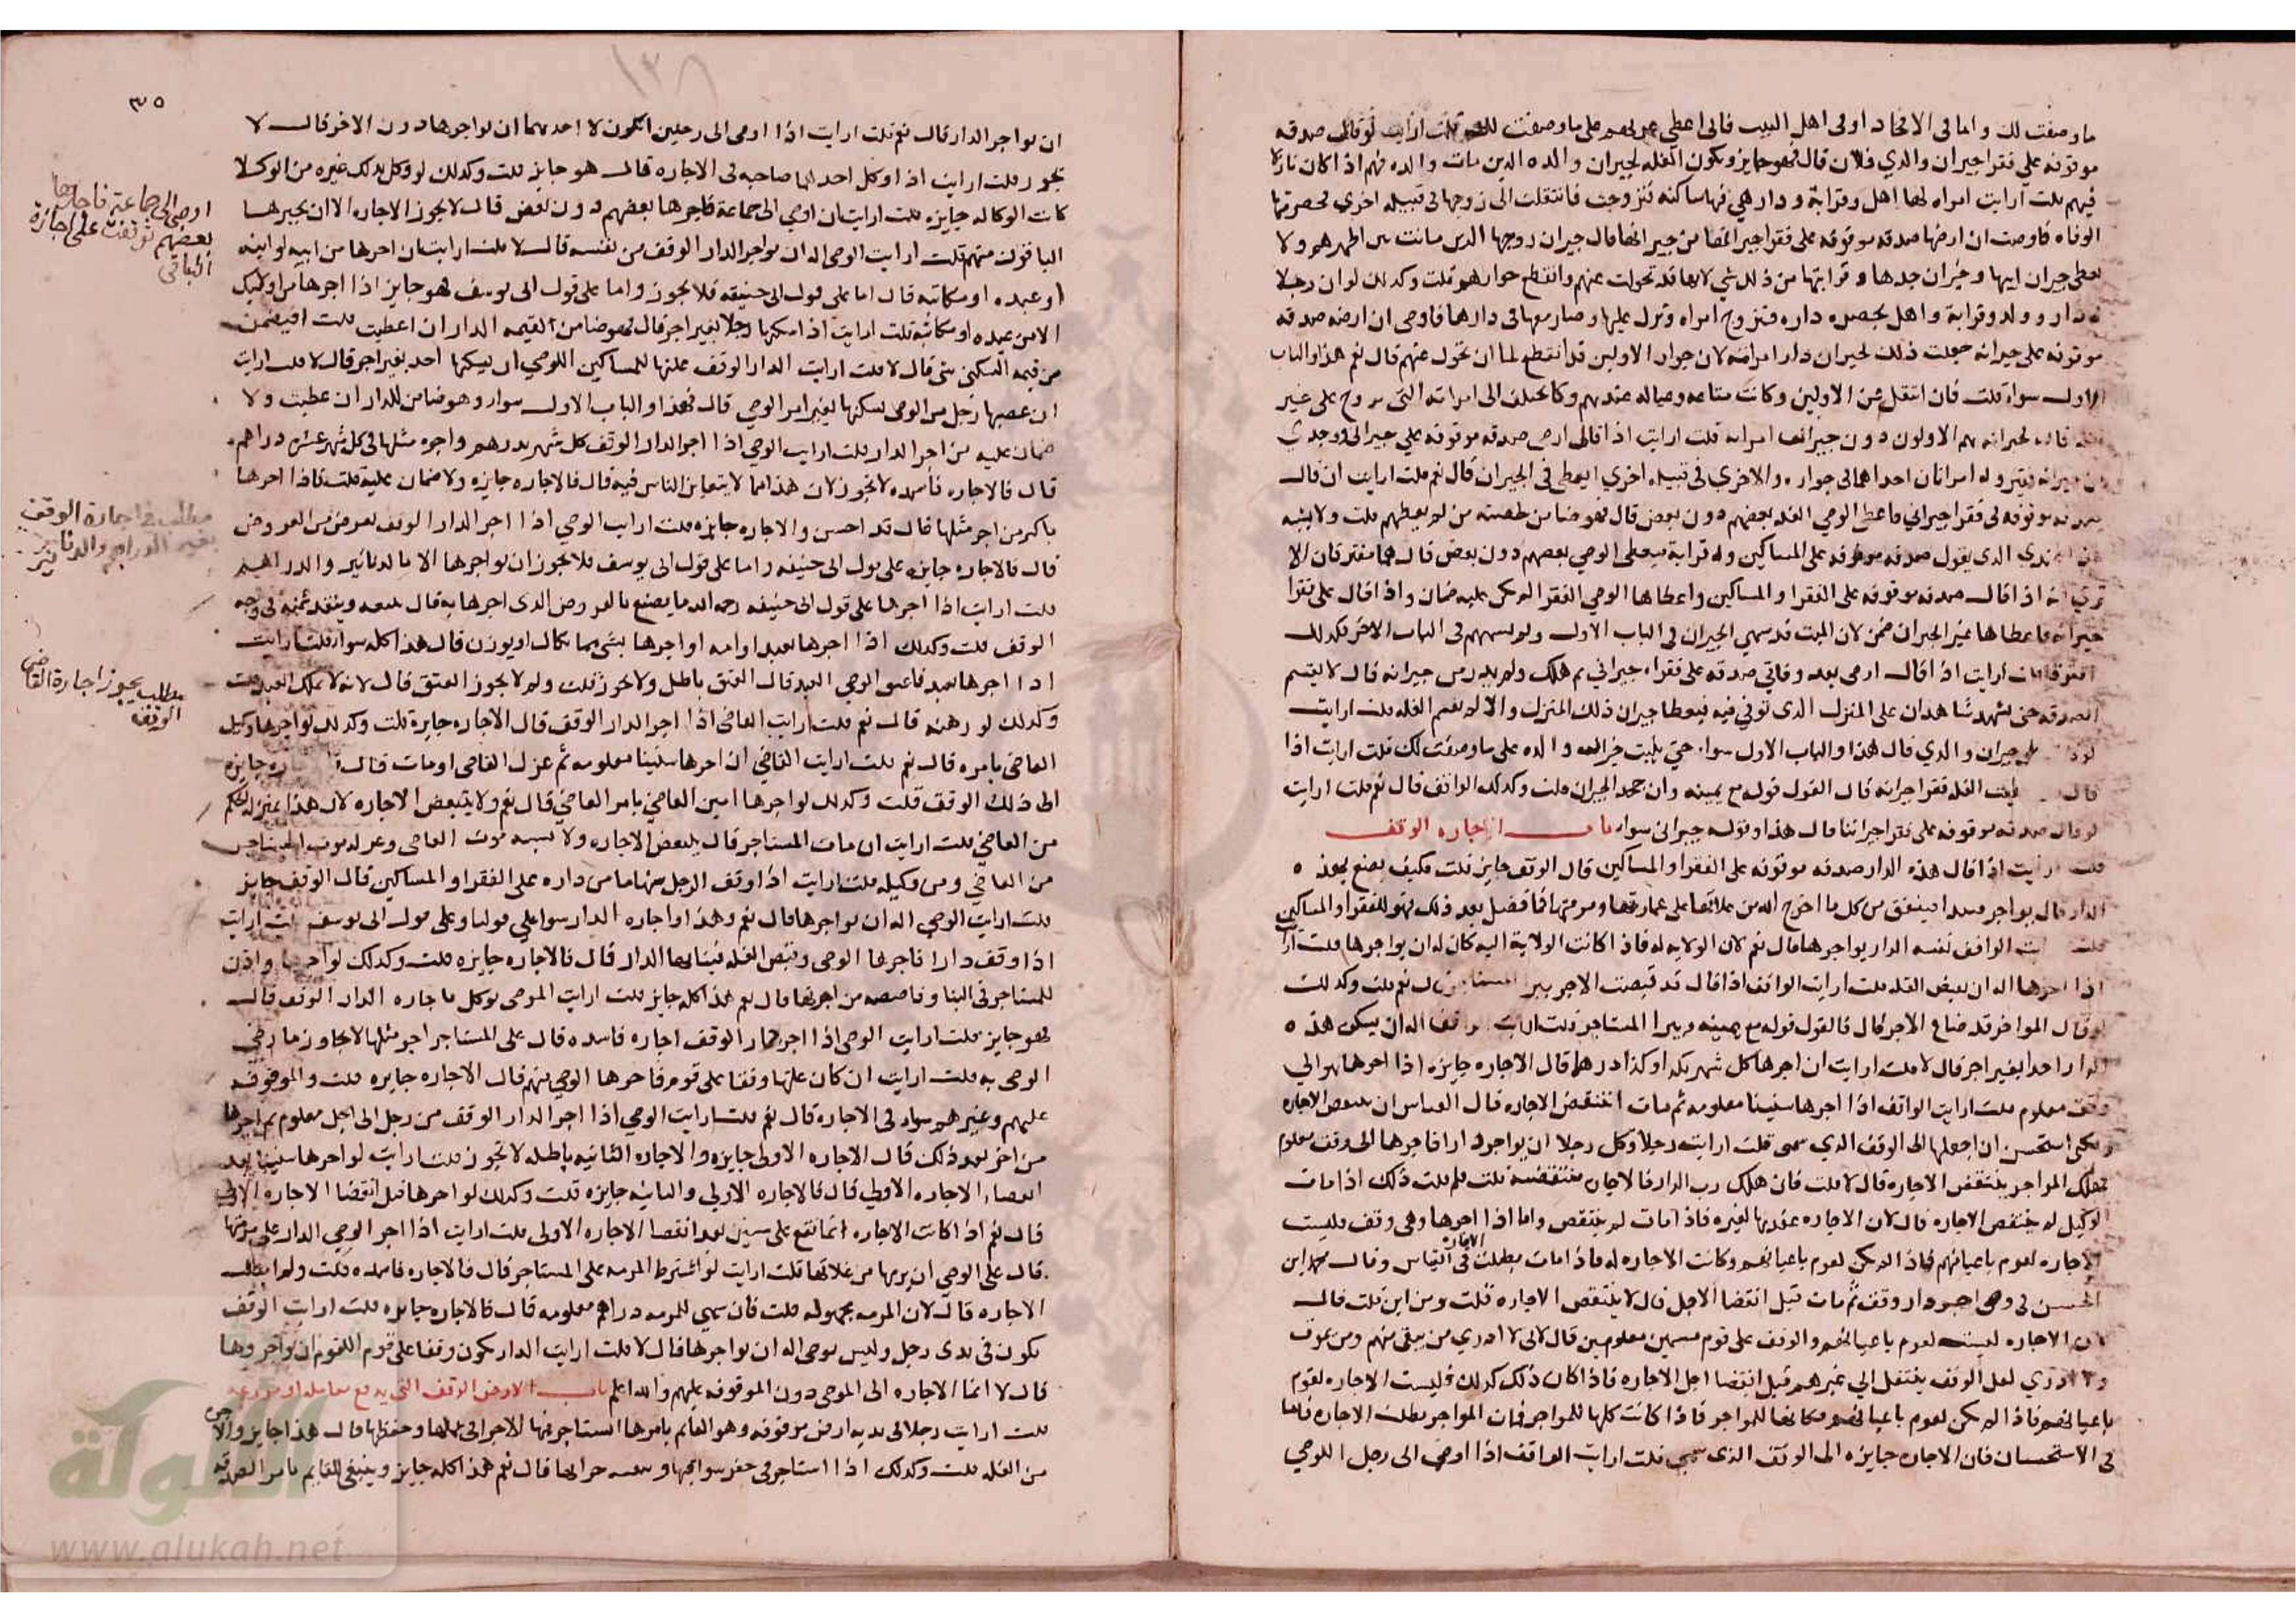 ما وصفت لك واما في الافخاد او في اهل البيت فاني اعطي على ما وصفت لك قلت ارايت لو قال صدقه
موقوفه علي فقرا جيران والدي فلان قال فهو جايز وتكون الغله لجيران والده الدين مات والده فيهم اذا كان نازلا
فيهم قلت ارايت امراه لها اهل وقرابة ودار هي فيها ساكنه فتزوجت فانتقلت الى زوجها في قبيله اخري فحضرتها
الوفاه فاوصت ان ارضها صدقه موقوفه على فقرا جيرانها من جيرانها قال جيران زوجها الدين ماتت بين اظهرهم ولا
يعطي جيران ابيها وجيران جدها وقرابتها من ذلك شي لانها قد تحولت عنهم وانقطع جوارهم قلت وكدلك لو ان رجلا
له دار وولد وقرابة واهل بحضره داره فتزوج امراه ونزل عليها وصار معها في دارها فاوصى ان ارضه صدقه
موقوفه على جيرانه جعلت ذلك لجيران دار امراته لان جوار الاولين قد انقطع لما ان تحول عنهم قال نعم هذا والباب
الاول سوا قلت فان انتقل عن الاولين وكانت متاعه وعياله عندهم وكان يختلف الى امراته التي تزوج على غير
نقله قال جيرانه هم الاولون دون جيران امراته قلت ارايت اذا قال ارضي صدقه موقوفه علي جيراني ووجدي
من جيرانه فقير وله امراتان احداهما في جواره والاخري في قبيله اخري ايعطى في الجيران قال نعم قلت ارايت ان قال
صدقه موقوفه في فقرا جيراني فاعطى الوصي الغله بعضهم دون بعض قال فهو ضامن لحصته من لم يعطهم قلت ولا يشبه
هذا عندي الذي يقول صدقه موقوفه على المساكين وله قرابة فيعطي الوصي بعضهم دون بعض قال هما مفترقان الا
ترى انه اذا قال صدقه موقوفه على الفقرا والمساكين واعطاها الوصي الفقرا لم يكن عليه ضمان واذا قال على فقرا
جيرانه فاعطاها غير الجيران ضمن لان الميت قد سمي الجيران في الباب الاول ولم يسمهم في الباب الاخر فكدلك
افترقا قلت ارايت اذا قال ارضي بعد وفاتي صدقه على فقراء جيراني ثم هلك ولم يدر من جيرانه قال لا يقسم
الصدقه حتى يشهد شاهدان على المنزل الذي توفي فيه فيعطا جيران ذلك المنزل والا لم يقسم الغله قلت ارايت
جيران والدي قال هذا والباب الاول سوا حتى يثبت على ما وصفت لك قلت ارايت اذا
قال اعطيت الغله فقرا جيرانه قال القول قوله مع يمينه وان جحد الجيران قلت وكدلك الواقف قال نعم قلت ارايت
لو قال صدقه موقوفه على فقرا جيراننا قال هذا وقوله جيراني سوا باب اجاره الوقف
قلت ارايت اذا قال هذه الدار صدقه موقوفه على الفقرا والمساكين قال الوقف جايز قلت فكيف يصنع بهذه
الدار قال يواجر فيبدا فينفق من كل ما اخرج الله من غلاتها على عمارتها ومرمتها فما فضل بعد ذلك فهو للفقرا والمساكين
قلت ارايت الواقف نفسه الدار يواجرها قال نعم لان الولايه له فاذا كانت الولاية اليه كان له ان يواجرها قلت ارايت
اذا اجرها اله ان يقبض الغله قلت ارايت الواقف اذا قال قد قبضت الاجر يبرا المستاجر قال نعم قلت وكدلك
لو قال المواجر قد ضاع الاجر قال فالقول قوله مع يمينه ويبرا المستاجر قلت ارايت الواقف اله ان يسكن هذه
الدار احدا بغير اجر قال لا قلت ارايت ان اجرها كل شهر بكدا وكذا درهما قال الاجاره جايزه اذا اجرها الي
وقت معلوم قلت ارايت الواقف اذا اجرها سنينا معلومه ثم مات اتنتقض الاجاره قال القياس ان ينقض الاجاره
ولكني استحسن ان اجعلها الى الوقت الذي سمى قلت ارايت رجلا وكل رجلا ان يواجر دارا فاجرها الى وقت معلوم
فهلك المواجر ينتقض الاجاره قال لا قلت فان هلك رب الدار قال الاجارة منتقضه قلت فلم قلت ذلك اذا مات
الوكيل لم ينتقض الاجاره قال لان الاجاره عقدها لغيره فاذا مات لم ينتقض واما اذا اجرها وهي وقف فليست
الاجاره لقوم باعيانهم فاذا لم يكن لقوم باعيانهم وكانت الاجاره له فاذا مات بطلت الاجارة في القياس وقال محمد ابن
الحسن في وصي اجر دار وقف ثم مات قبل انقضا الاجل قال لا ينتقض الاجاره قلت ومن اين قلت قال
لان الاجاره ليست لقوم باعيانهم والوقف على قوم مسمين معلومين قال لاني لا ادري من يبقى منهم ومن يموت
ولا ادري لعل الوقف ينتقل الي غيرهم قبل انقضا اجل الاجاره فاذا كان ذلك كدلك فليست الاجاره لقوم
باعيانهم فاذا لم يكن لقوم باعيانهم فكانها للمواجر فاذا كانت كلها للمواجر فمات المواجر بطلت الاجاره فاما
في الاستحسان فان الاجاره جايزه الى الوقت الذي سمي قلت ارايت الواقف اذا اوصى الى رجل اللوصي
٣٥
ان يواجر الدار قال نعم قلت ارايت اذا اوصى الى رجلين ايكون لاحدهما ان يواجرها دون الاخر قال لا
يجوز قلت ارايت اذا وكل احدهما صاحبه في الاجاره قال هو جايز قلت وكدلك لو وكل بذلك غيره من الوكلا
كانت الوكاله جايزه قلت ارايت ان اوصى الى جماعة فاجرها بعضهم دون بعض قال لا يجوز الاجاره الا ان يجيزها
الباقون منهم قلت ارايت الوصي اله ان يواجر الدار الوقف من نفسه قال لا قلت ارايت ان اجرها من ابيه او ابنه
او عبده او مكاتبه قال اما على قول ابي حنيفه فلا يجوز واما على قول ابي يوسف فهو جايز اذا اجرها من اوليك
الا من عبده او مكاتبه قلت ارايت اذا اسكنها رجلا بغير اجر قال فهو ضامن القيمه الدار ان اعطبت قلت افيضمن
من قيمه السكنى شي قال لا قلت ارايت الدار الوقف غلتها للمساكين اللوصي ان يسكنها احد بغير اجر قال لا قلت ارايت
ان غصبها رجل من الوصي يسكنها بغير امر الوصي قال فهذا والباب الاول سوا وهو ضامن للدار ان عطبت ولا
ضمان عليه من اجر الدار قلت ارايت الوصي اذا اجر الدار الوقف كل شهر بدرهم واجره مثلها في كل شهر عشره دراهم
قال فالاجاره فاسده لا تجوز لان هذا مما لا يتغابن الناس فيه قال فالاجاره جايزه ولا ضمان عليه قلت فاذا اجرها
باكثر من اجر مثلها قال قد احسن والاجاره جايزه قلت ارايت الوصي اذا اجر الدار الوقف بعرض من العروض
قال فالاجاره جايزه على قول ابي حنيفه واما على قول ابي يوسف فلا يجوز ان يواجرها الا بالدنانير والدراهم
قلت ارايت اذا اجرها على قول ابي حنيفه رحمه الله ما يصنع بالعروض الذي اجرها به قال يبيعه وينفذ ثمنه في وجه
الوقف قلت وكدلك اذا اجرها بعبد او امه او اجرها بشي مما يكال او يوزن قال هذا كله سوا قلت ارايت
اذا اجرها بعبد فاعتق الوصي العبد قال العتق باطل ولا يجوز قلت ولم لا يجوز العتق قال لانه لا يملك العبد قلت
وكدلك لو رهنه قال نعم قلت ارايت القاضي اذا اجر الدار الوقف قال الاجاره جايزة قلت وكدلك لو اجرها وكيل
القاضي بامره قال نعم قلت ارايت القاضي ان اجرها سنينا معلومه ثم عزل القاضي او مات قال الاجاره جايزه
الى ذلك الوقت قلت وكدلك لو اجرها امين القاضي بامر القاضي قال نعم ولا ينتقض الاجاره لان هذا بمنزله الحكم
من القاضي قلت ارايت ان مات المستاجر قال ينتقض الاجاره ولا يشبه موت القاضي وعزله موت المستاجر
من القاضي ومن وكيله قلت ارايت اذا وقف الرجل سهاما من داره على الفقرا والمساكين قال الوقف جايز
قلت ارايت الوصي اله ان يواجرها قال نعم وهذا واجاره الدار سوا علي قولنا وعلى قول ابي يوسف قلت ارايت
اذا وقف دارا فاجرها الوصي وقبض الغله فبنا بها الدار قال فالاجاره جايزه قلت وكدلك لو اجرها واذن
للمستاجر في البنا وقاصصه من اجرتها قال نعم هذا كله جايز قلت ارايت الوصي يوكل باجاره الدار الوقف قال
فهو جايز قلت ارايت الوصي اذا اجر دار الوقف اجاره فاسده قال على المستاجر اجر مثلها لا يجاوز ما رضي
الوصي به قلت ارايت ان كان غلتها وقفا على قوم فاجرها الوصي منهم قال الاجاره جايزه قلت والموقوف
عليهم وغيرهم سوا في الاجاره قال نعم قلت ارايت الوصي اذا اجر الدار الوقف من رجل الى اجل معلوم ثم اجرها
من اخر بعد ذلك قال الاجاره الاولى جايزه والاجاره الثانيه باطله لا تجوز قلت ارايت لو اجرها سنينا بعد
انقضاء الاجاره الاولى قال فالاجاره الاولي والثانيه جايزه قلت وكدلك لو اجرها قبل انقضا الاجاره الاولى
قال نعم اذا كانت الاجاره انما تقع على سنين بعد انقضا الاجاره الاولى قلت ارايت اذا اجر الوصي الدار على مرمتها
قال على الوصي ان يرمها من غلاتها قلت ارايت لو اشترط المرمه على المستاجر قال فالاجاره فاسده قلت ولم ابطلت
الاجاره قال لان المرمه مجهوله قلت فان سمي للمرمه دراهم معلومه قال فالاجاره جايزه قلت ارايت الوقف
يكون في يدي رجل وليس بوصي اله ان يواجرها قال لا قلت ارايت الدار تكون وقفا على قوم اللقوم ان يواجروها
قال لا انما الاجاره الى الوصي دون الموقوفه عليهم والله اعلم باب الارض الوقف التي يدفع معامله او مزارعه
قلت ارايت رجلا في يديه ارض موقوفه وهو القايم بامرها استاجر فيها الاجرا في عملها وحفظها قال هذا جايز والاجر
من الغله قلت وكدلك اذا استاجر في حفر سواقيها قال نعم هذا كله جايز وينبغي للقايم بامر الصدقه
اوصى الى جماعة فاجارها
بعضهم توقفت على اجازة
الباقي
مطلب في اجارة الوقف
بغير الدراهم والدنانير
مطلب يجوز اجارة القاضي
الوقف
الألوكة
www.alukah.net